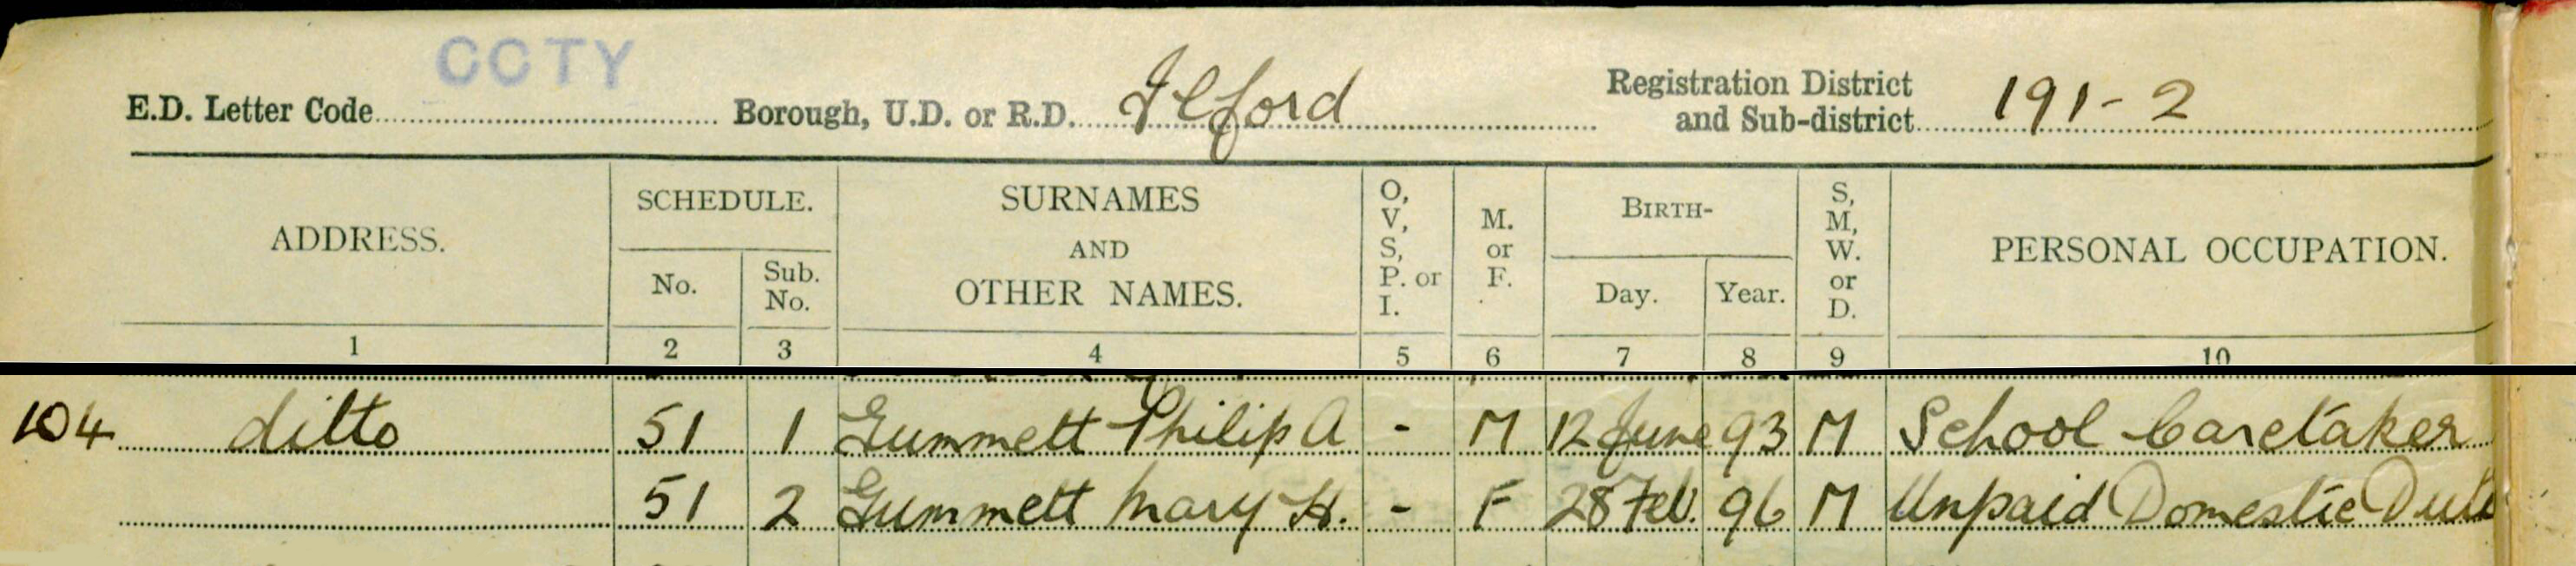 CCTY
E.D. Letter Code Borough, U.D. or R.D. Ilford Registration District and Sub-district 191-2
ADDRESS. SCHEDULE. No. Sub. No. SURNAMES AND OTHER NAMES. O, V, S, P. or I. M. or F. BIRTH- Day. Year. S, M, W. or D. PERSONAL OCCUPATION.
1 2 3 4 5 6 7 8 9 10
104 ditto 51 1 Gummett Philip A - M 12 June 93 M School Caretaker
51 2 Gummett Mary H. - F 28 Feb. 96 M Unpaid Domestic Duti